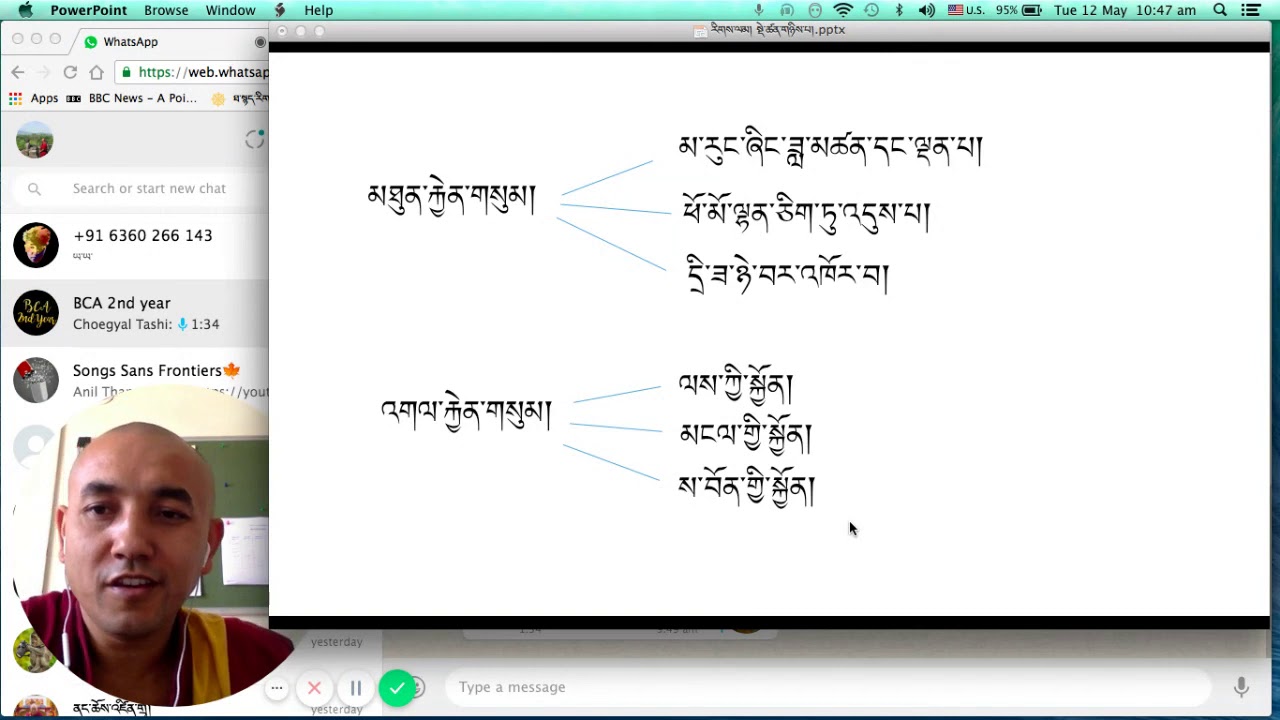 PowerPoint Browse Window Help
U.S. 95% Tue 12 May 10:47 am
WhatsApp
https://web.whatsap
Apps BBC News – A Poi...
Search or start new chat
+91 6360 266 143
BCA 2nd year
Choegyal Tashi: 1:34
Songs Sans Frontiers
yesterday
yesterday
རིགས་ལམ། སྡེ་ཚན་གཉིས་པ།.pptx
མཐུན་རྐྱེན་གསུམ།
མ་རུང་ཞིང་ཟླ་མཚན་དང་ལྡན་པ།
ཕོ་མོ་ལྷན་ཅིག་ཏུ་འདུས་པ།
དྲི་ཟ་ཉེ་བར་འཁོར་བ།
འགལ་རྐྱེན་གསུམ།
ལས་ཀྱི་སྐྱོན།
མངལ་གྱི་སྐྱོན།
ས་བོན་གྱི་སྐྱོན།
Type a message